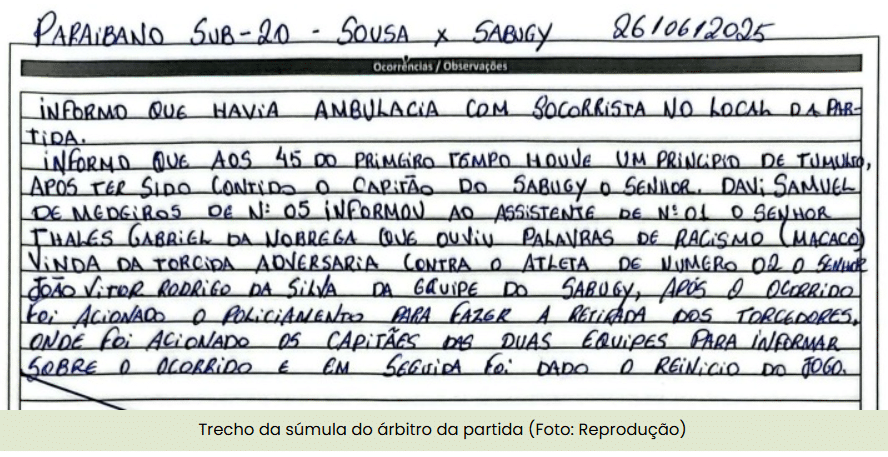 PARAIBANO SUB-20 - SOUSA X SABUGY 26/06/2025
Ocorrências / Observações
INFORMO QUE HAVIA AMBULACIA COM SOCORRISTA NO LOCAL DA PAR-
TIDA.
INFORMO QUE AOS 45 DO PRIMEIRO TEMPO HOUVE UM PRINCIPIO DE TUMULTO,
APOS TER SIDO CONTIDO O CAPITÃO DO SABUGY O SENHOR. DAVI SAMUEL
DE MEDEIROS DE Nº 05 INFORMOU AO ASSISTENTE DE Nº 01 O SENHOR
THALES GABRIEL DA NOBREGA QUE OUVIU PALAVRAS DE RACISMO (MACACO)
VINDA DA TORCIDA ADVERSARIA CONTRA O ATLETA DE NUMERO 02 O SENHOR
JOÃO VITOR RODRIGO DA SILVA DA EQUIPE DO SABUGY, APÓS O OCORRIDO
FOI ACIONADO O POLICIAMENTO PARA FAZER A RETIRADA DOS TORCEDORES.
ONDE FOI ACIONADO OS CAPITÃES DAS DUAS EQUIPES PARA INFORMAR
SOBRE O OCORRIDO E EM SEGUIDA FOI DADO O REINICIO DO JOGO.
Trecho da súmula do árbitro da partida (Foto: Reprodução)